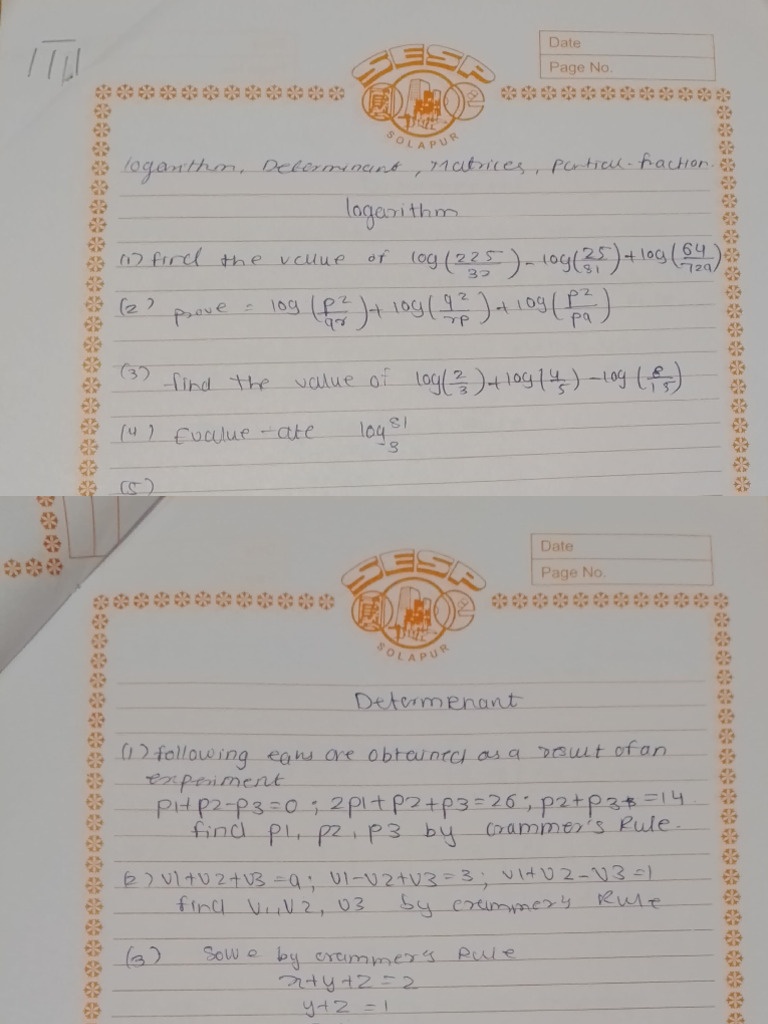 SESP
SOLAPUR
Date
Page No.
logarithm, Determinant, Matrices, partial-fraction.
logarithm
(1) find the value of log(225/32) - log(25/81) + log(64/729)
(2) prove = log(p²/qr) + log(q²/rp) + log(p²/pq)
(3) find the value of log(2/3) + log(4/5) - log(8/15)
(4) Evalue-ate log 81
3
(5)
SESP
SOLAPUR
Date
Page No.
Determenant
(1) following eqns are obtained as a result of an
experiment
p1+p2-p3=0 ; 2p1+p2+p3=26 ; p2+p3 =14
find p1, p2, p3 by crammer's Rule.
(2) V1+V2+V3=9; V1-V2+V3=3; V1+V2-V3=1
find V1, V2, V3 by crammer's Rule
(3) Solve by crammer's Rule
x+y+z=2
y+z=1